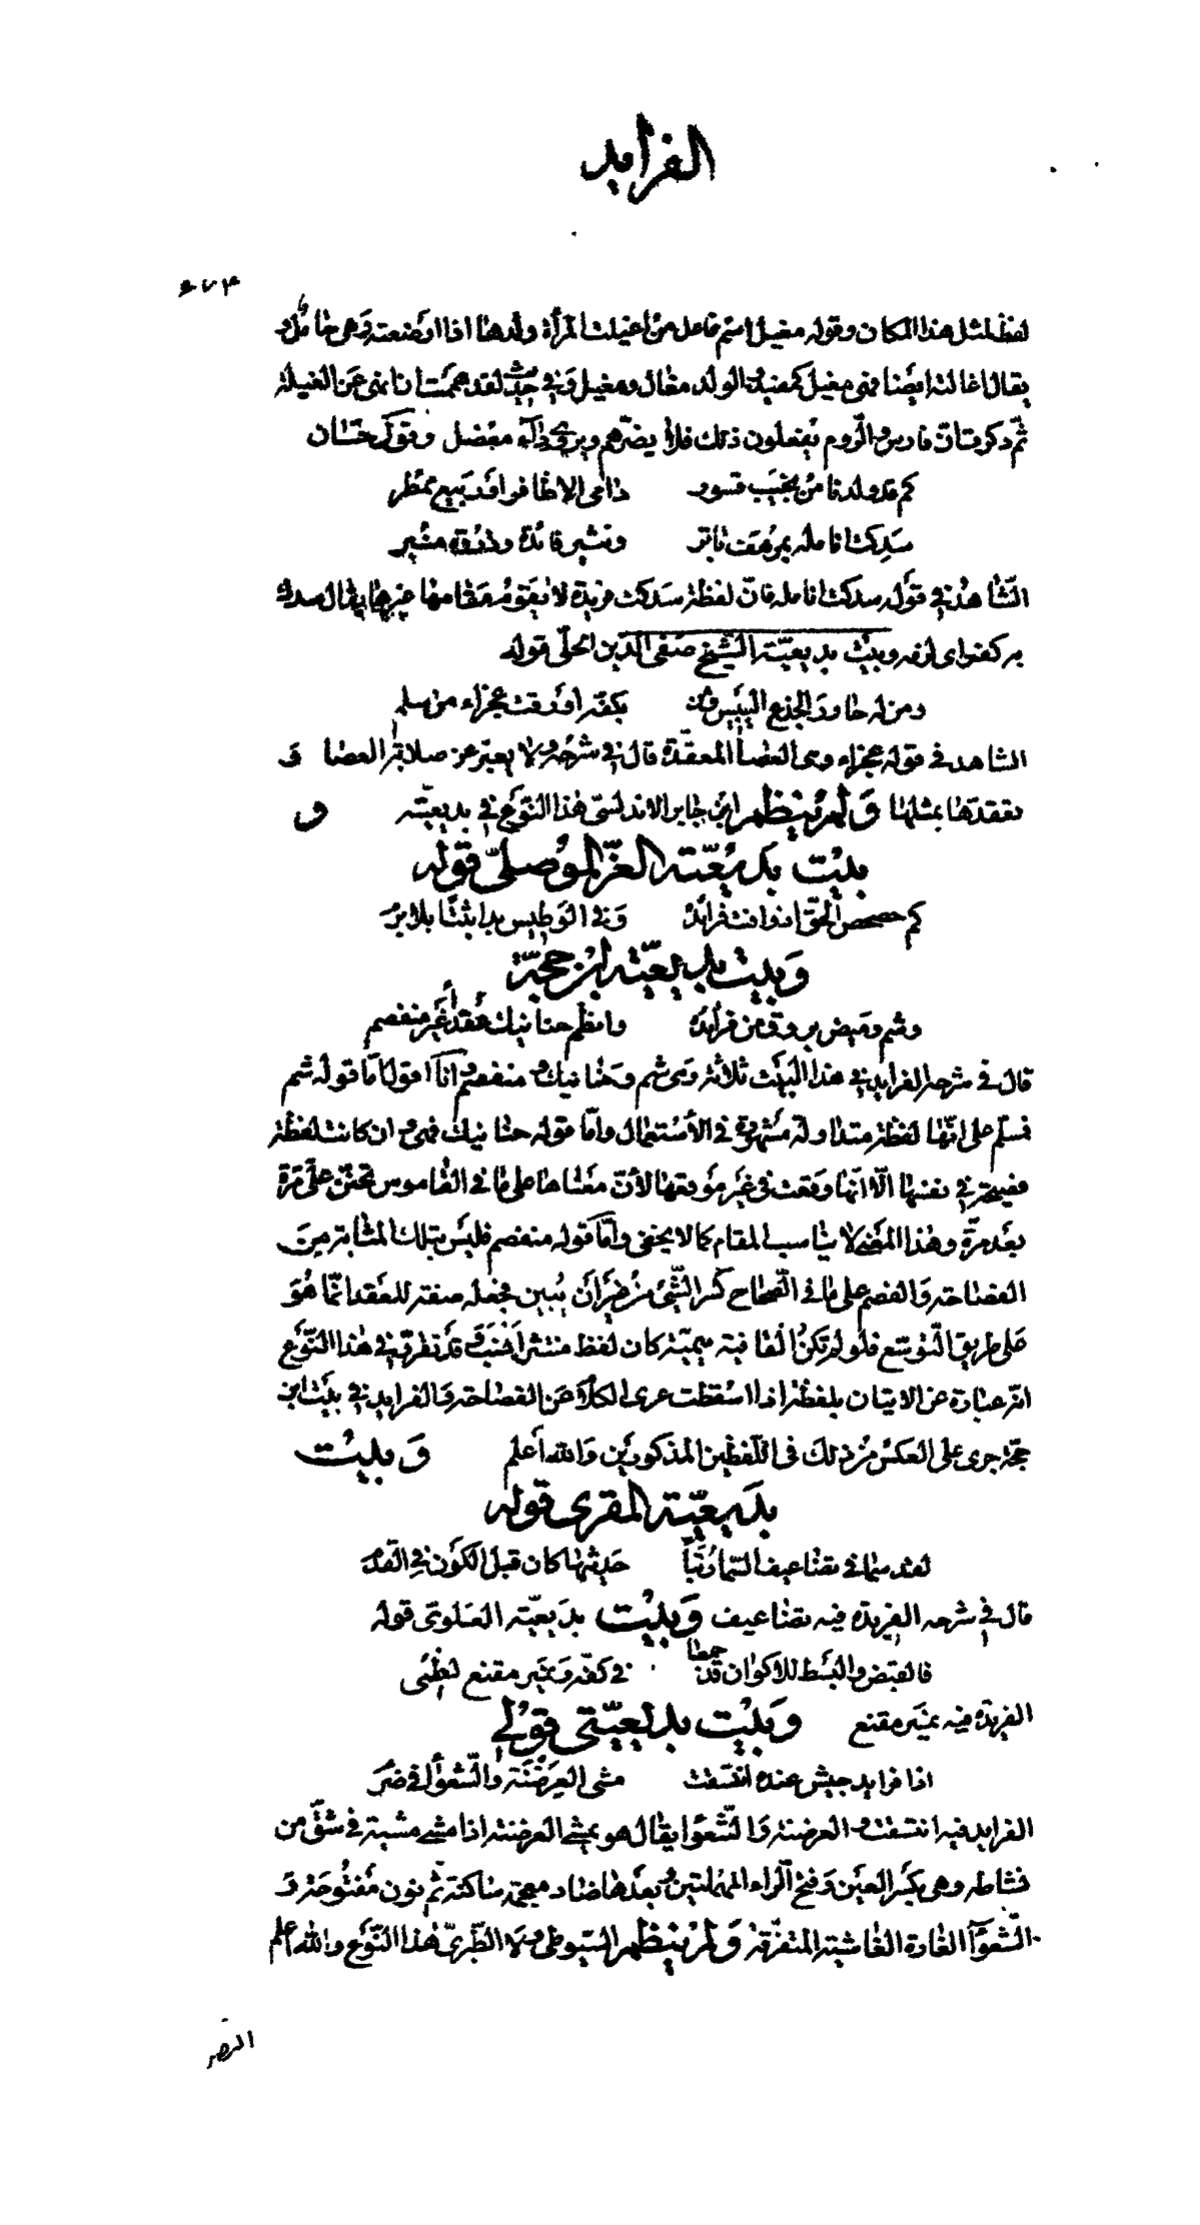 الفرايد
۶۷۴
لفظ لمثل هذا المكان وقوله مغيل اسم فاعل من اغيلت المرأة ولدها اذا ارضعته وهى حامل و
يقال اغالته ايضا فهى مغيل كمفيد والولد مغال ومغيل وفي حديث لقد هممت ان انهى عن الغيلة
ثم ذكرت ان فارس والروم يفعلون ذلك فلا يضرهم ويروى وداء معضل وقول حسان
كم قد ولدنا من نجيب قسور دامى الاظافر او ربيع ممطر
سدكت انامله بمرهفة باتر وبنشر فائدة وذروة منبر
الشاهد في قوله سدكت انامله فان لفظة سدكت فريدة لا يقوم مقامها غيرها يقال سدك
به كفرح اى لزمه وبيت بديعية الشيخ صفى الدين الحلى قوله
ومن له حاور الجذع اليبيس ومن بكفه اورقت عجزاء من سلم
الشاهد في قوله عجزاء وهى العصا المعقدة قال في شرحه ولا يعبر عن صلابة العصا و
تعقدها بمثلها ولم ينظم ابن جابر الاندلسى هذا النوع في بديعيته و
بيت بديعية العز الموصلى قوله
كم حصحص الحق اذ وافت فرائده وفى الوطيس بدا ثبتا بلا برم
وبيت بديعية ابن حجة
وشم وميض بروق من فرائده وانظم حنانيك عقدا غير منفصم
قال في شرحه الفرايد في هذا البيت ثلاثة وهى شم وحنانيك ومنفصم وانا اقول اما قوله شم
فسلم على انها لفظة متداولة مشهورة في الاستعمال واما قوله حنانيك فهى وان كانت لفظة
فصيحة في نفسها الا انها وقعت فى غير موقعها لان معناها على ما فى القاموس تحنن على مرة
بعد مرة وهذا المعنى لا يناسب المقام كما لا يخفى واما قوله منفصم فليس بتلك المثابة من
الفصاحة والفصم على ما فى الصحاح كسر الشئ من غير ان يبين فجعله صفة للعقد انما هو
على طريق التوسع فلو لم تكن القافية ميمية كان لفظ منتثر اجنب وقد تقرر في هذا النوع
انه عبارة عن الاتيان بلفظة اذا اسقطت عرى الكلام عن الفصاحة والفرايد في بيت ابن
حجة جرى على العكس من ذلك فى اللفظين المذكورين والله اعلم وبيت
بديعية المقرى قوله
لقد سما فى تضاعيف السما رتبا حديثها كان قبل الكون في القدم
قال في شرحه الفريدة فيه تضاعيف وبيت بديعية العلوى قوله
فالقبض والبسط للاكوان قد جمعا في كفه وبمير مقنع لظمى
الفريدة فيه بمير مقنع وبيت بديعيتى قولى
اذا فرايد جيش عنده اتسقت مشى العرضنة والشعواء فى ضرم
الفرايد فيه اتسقت والعرضنة والشعواء يقال هو يمشى العرضنة اذا مشى مشية فى شق من
نشاطه وهى بكسر العين وفتح الراء المهملتين وبعدها ضاد معجمة ساكنة ثم نون مفتوحة و
الشعواء الغارة الفاشية المتفرقة ولم ينظم السيوطى ولا الطبرى هذا النوع والله اعلم